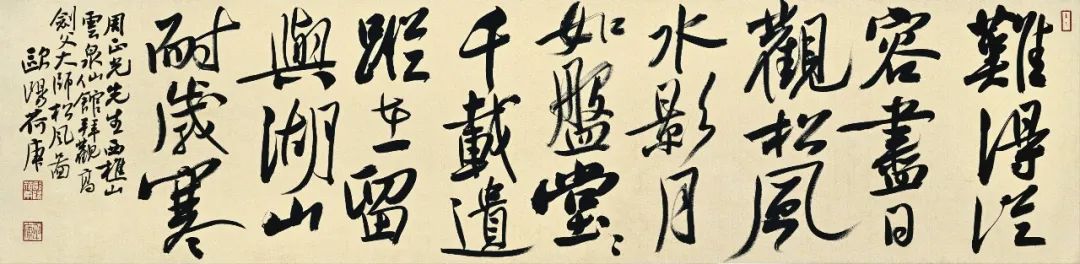 難得從
容盡日
觀松風
水影月
如盤堂〻
千載遺
蹤在留
與湖山
耐歲寒
周正光先生西樵山
雲泉仙館拜觀高
劍父大師松風圖
歐陽荷庚